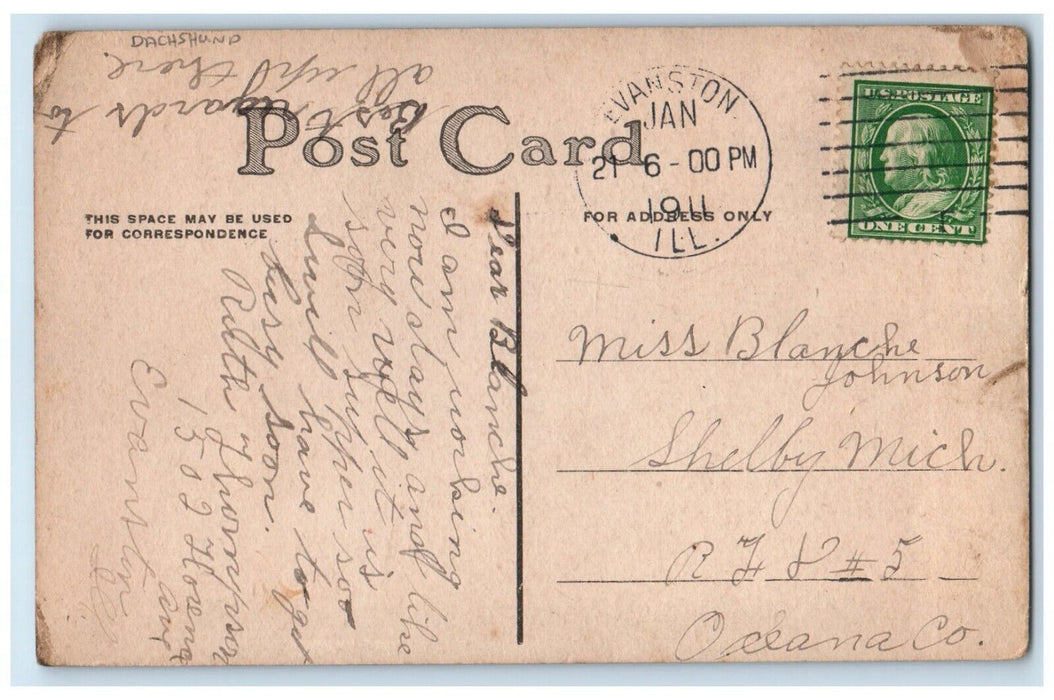 DACHSHUND
Best regards to
all up there.
Post Card
THIS SPACE MAY BE USED
FOR CORRESPONDENCE
FOR ADDRESS ONLY
EVANSTON
JAN
21 6-00 PM
1911
ILL.
U.S. POSTAGE
ONE CENT
Dear Blanche.
I am working
now days and like
very well it is
soon supper so
I will have to get
busy soon.
Ruth Thompson
1502
Ave
Evanston
Ill
Miss Blanche
Johnson
Shelby Mich.
R F D #5
Oceana Co.